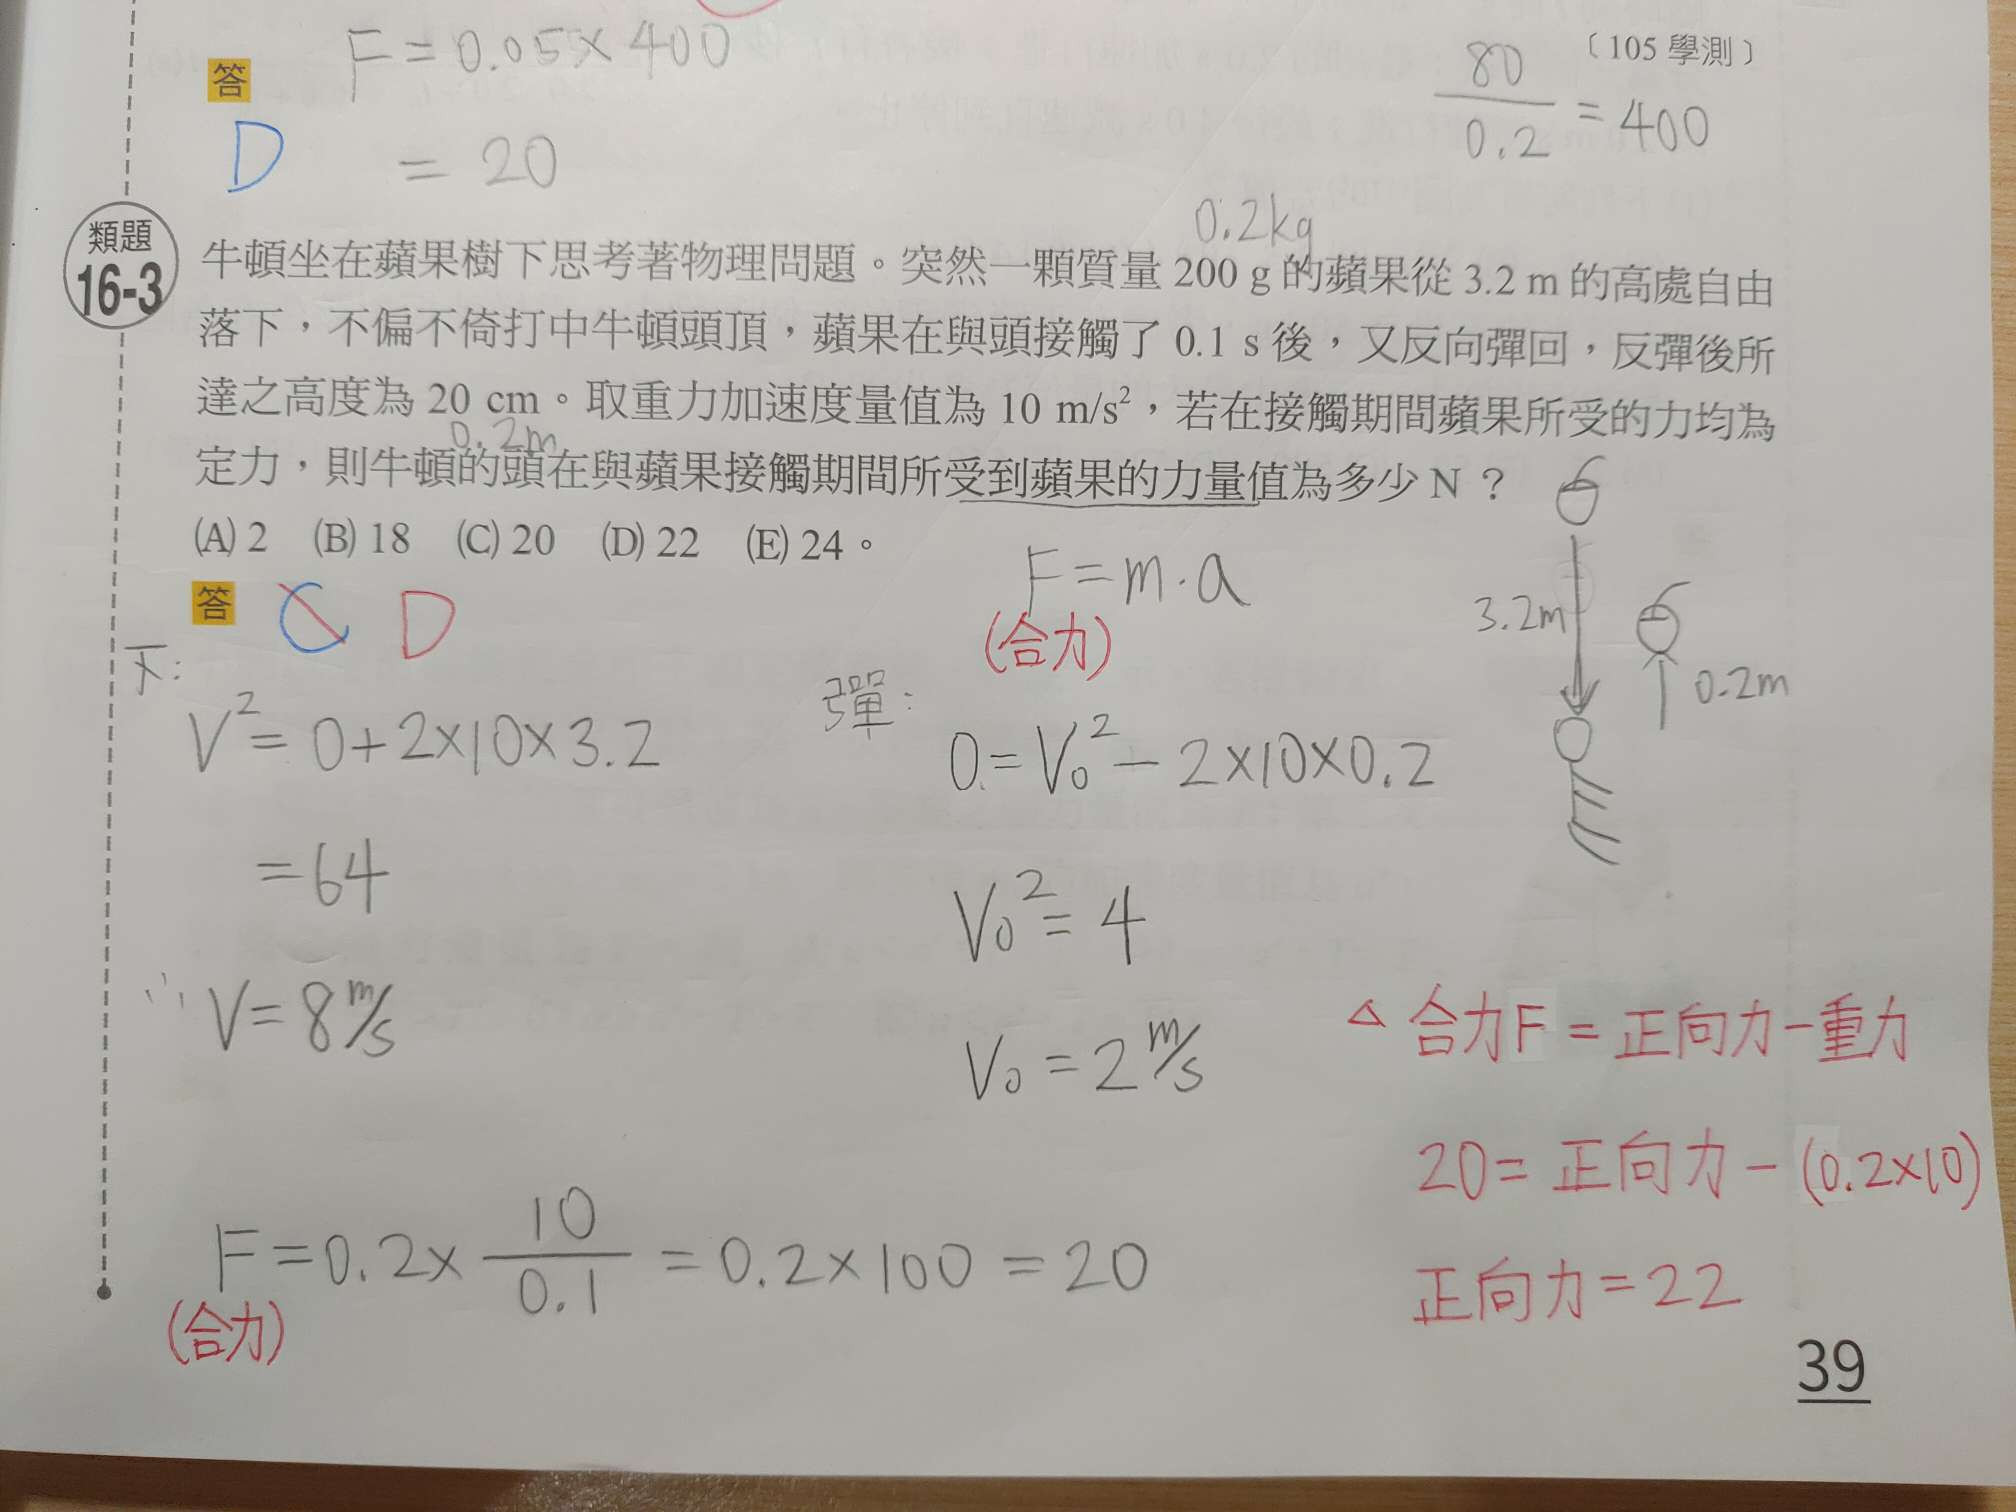 F = 0.05 × 400
〔105 學測〕
答
80/0.2 = 400
D
= 20
0.2kg
類題 16-3
牛頓坐在蘋果樹下思考著物理問題。突然一顆質量 200 g 的蘋果從 3.2 m 的高處自由
落下，不偏不倚打中牛頓頭頂，蘋果在與頭接觸了 0.1 s 後，又反向彈回，反彈後所
達之高度為 20 cm。取重力加速度量值為 10 m/s²，若在接觸期間蘋果所受的力均為
0.2m
定力，則牛頓的頭在與蘋果接觸期間所受到蘋果的力量值為多少 N？
(A) 2 (B) 18 (C) 20 (D) 22 (E) 24。
F = m · a
答 C D
(合力)
3.2m
0.2m
下:
彈:
V² = 0 + 2×10×3.2
0 = V₀² − 2×10×0.2
= 64
V₀² = 4
∴ V = 8 m/s
V₀ = 2 m/s
△ 合力F = 正向力 − 重力
20 = 正向力 − (0.2×10)
F = 0.2 × 10/0.1 = 0.2 × 100 = 20
(合力)
正向力 = 22
39